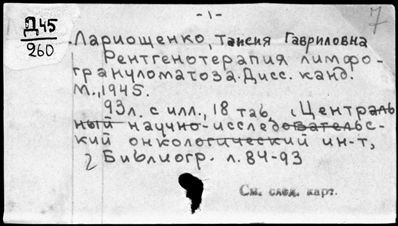 - 1 -
7
Д45
260
Лариощенко, Таисия Гавриловна
Рентгенотерапия лимфо-
грануломатоза. Дисс. канд.
М., 1945.
93л. с илл., 18 таб. (Централь-
ный научно-исследовательс-
кий онкологический ин-т,
2 Библиогр. л. 84-93
См. след. карт.